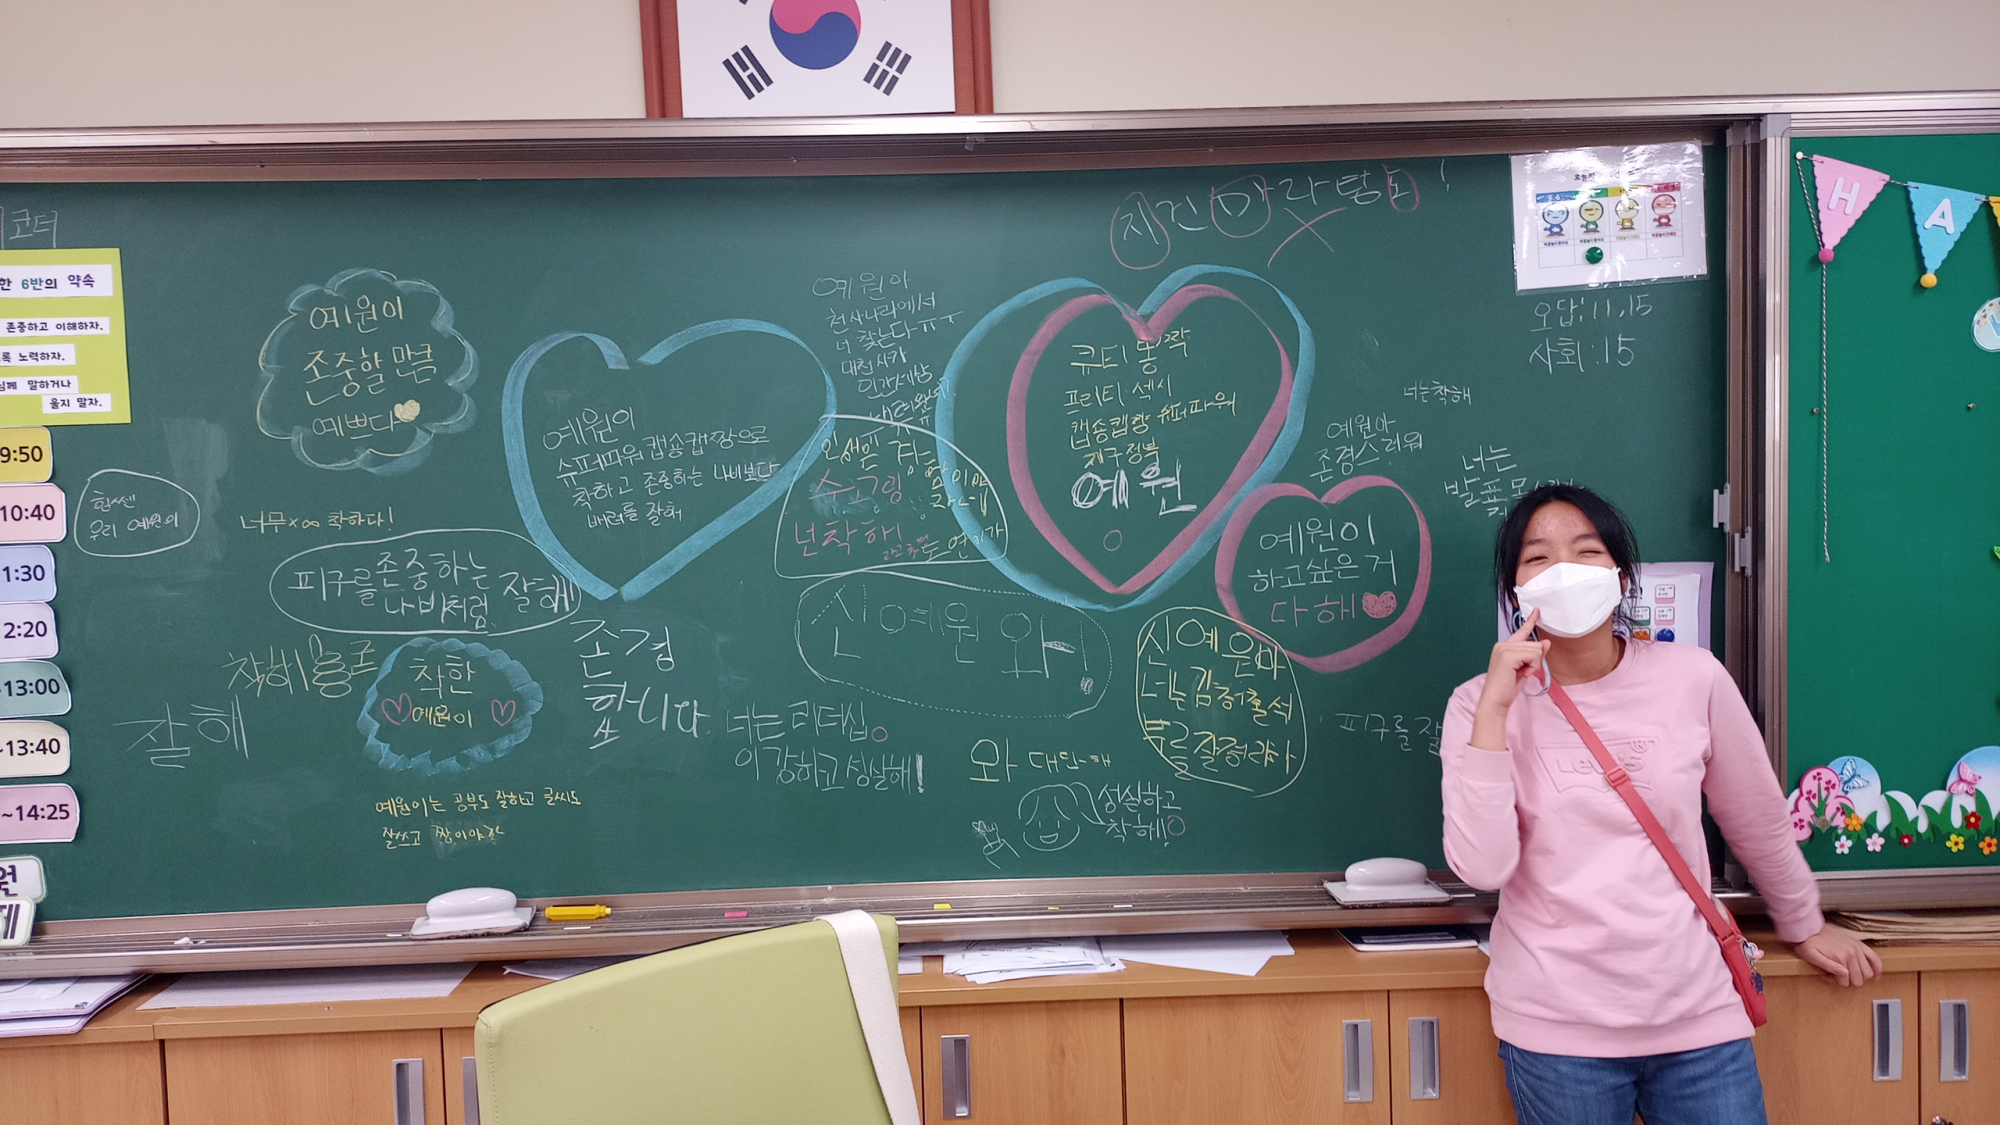 코더
한 6반의 약속
존중하고 이해하자.
록 노력하자.
심께 말하거나
울지 말자.
9:50
10:40
1:30
2:20
13:00
~13:40
~14:25
원
제
예원이
존중할 만큼
예쁘다
힘쎈
우리 예원이
너무×∞ 착하다!
피구를 존중하는
나비처럼 잘해
착해용
잘해
착한
예원이
예원이는 공부도 잘하고 글씨도
잘쓰고 짱이야
예원이
슈퍼파워 캡숑캡짱으로
착하고 존중하는 나비보다
배려를 잘해
존경
합니다.
예원아
천사나라에서
너 찾는다ㅠㅜ
대천사가
인간세상
넌 착해!
신예원 와
너는 리더십
이 강하고 성실해!
와 대단해
성실하고
착해!
지건 마라탕
큐티 뽕짝
프리티 섹시
캡숑캡짱 슈퍼파워
지구정복
예원
신예원아
너는 김
예원이
하고싶은 거
다 해
예원아
존경스러워
너는착해
너는
발표
피구를 잘
오답:11,15
사회:15
Levi's®
H
A